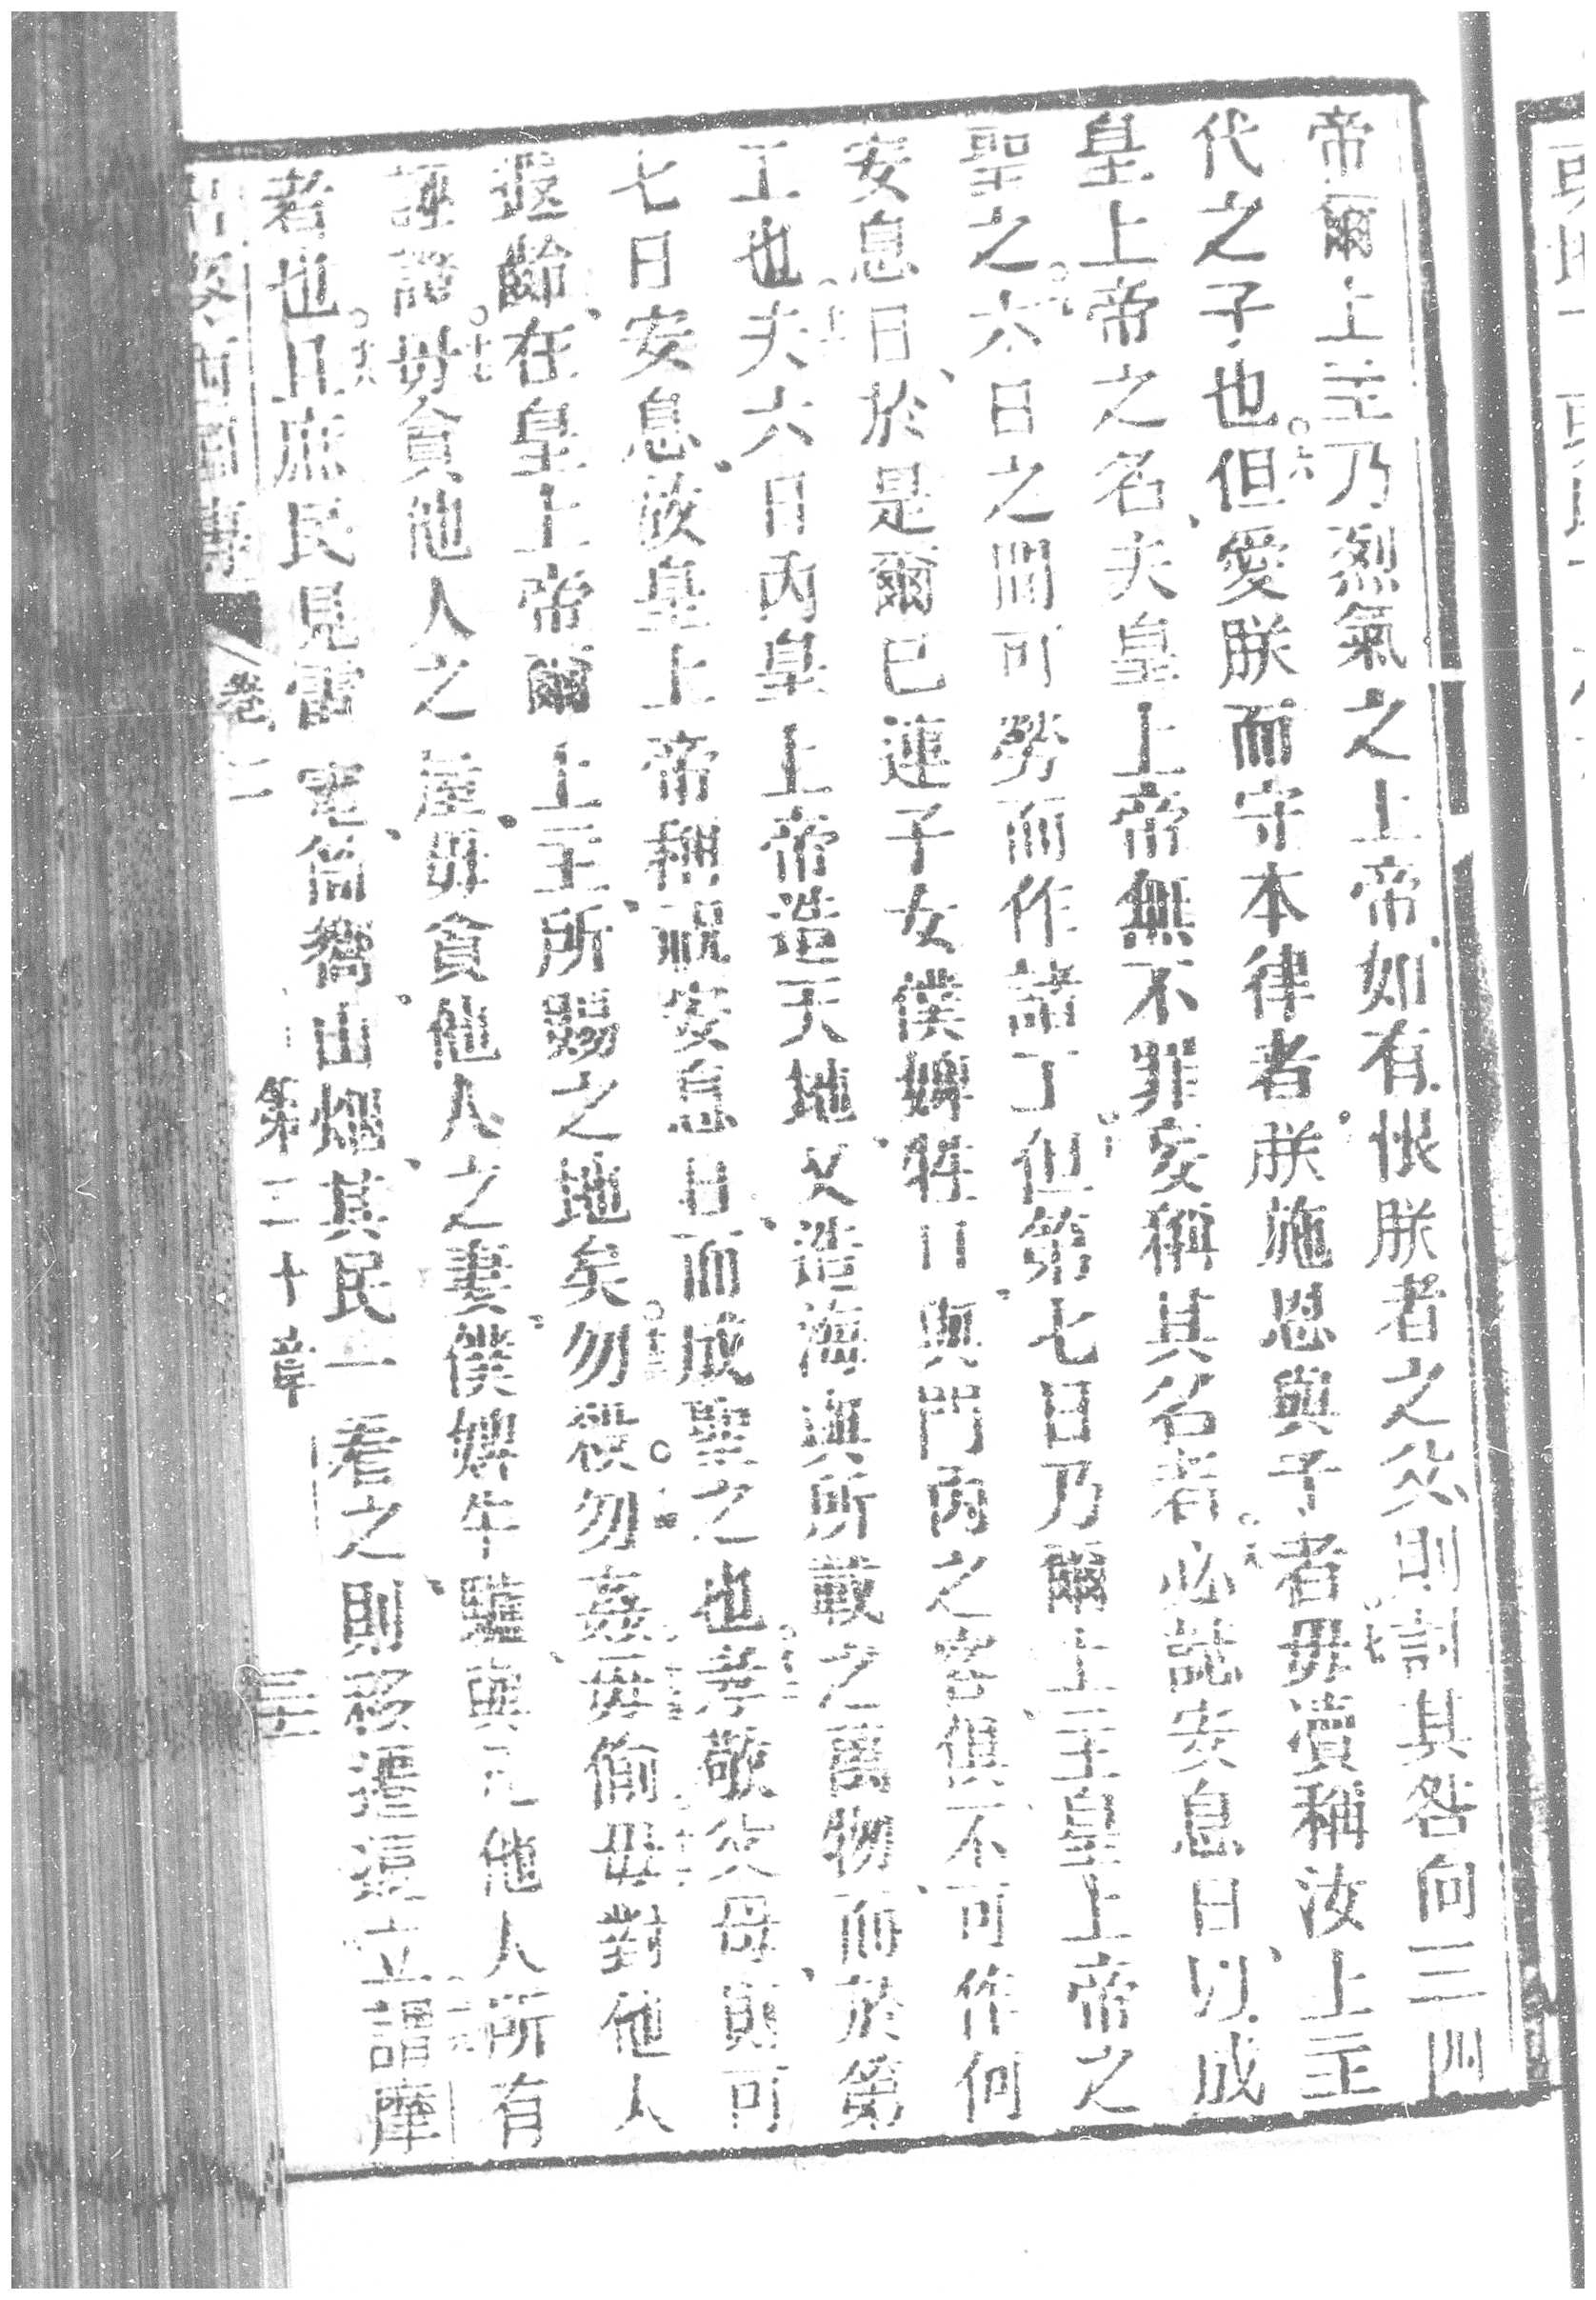 帝爾上主乃烈氣之上帝、如有恨朕者之父、則討其咎向三四
代之子也但愛朕而守本律者朕施恩與子者毋瀆稱汝上主
皇上帝之名、夫皇上帝無不罪妄稱其名者必誌安息日、以成
聖之六日之間可勞而作諸工但第七日乃爾上主皇上帝之
安息日、於是爾已連子女僕婢牲口、與門內之客、俱不可作何
工也夫六日內皇上帝造天地、又造海與所載之萬物、而於第
七日安息、故皇上帝祝安息日、而成聖之也孝敬父母、則可
遐齡、在皇上帝爾上主所賜之地矣勿殺勿姦毋偷毋對他人
誣證毋貪他人之屋、毋貪他人之妻、僕婢牛驢、與凡他人所有
者也且庶民見雷電、筒響、山煙、其民一看之、則移遷遠立謂摩
卷二
第二十章